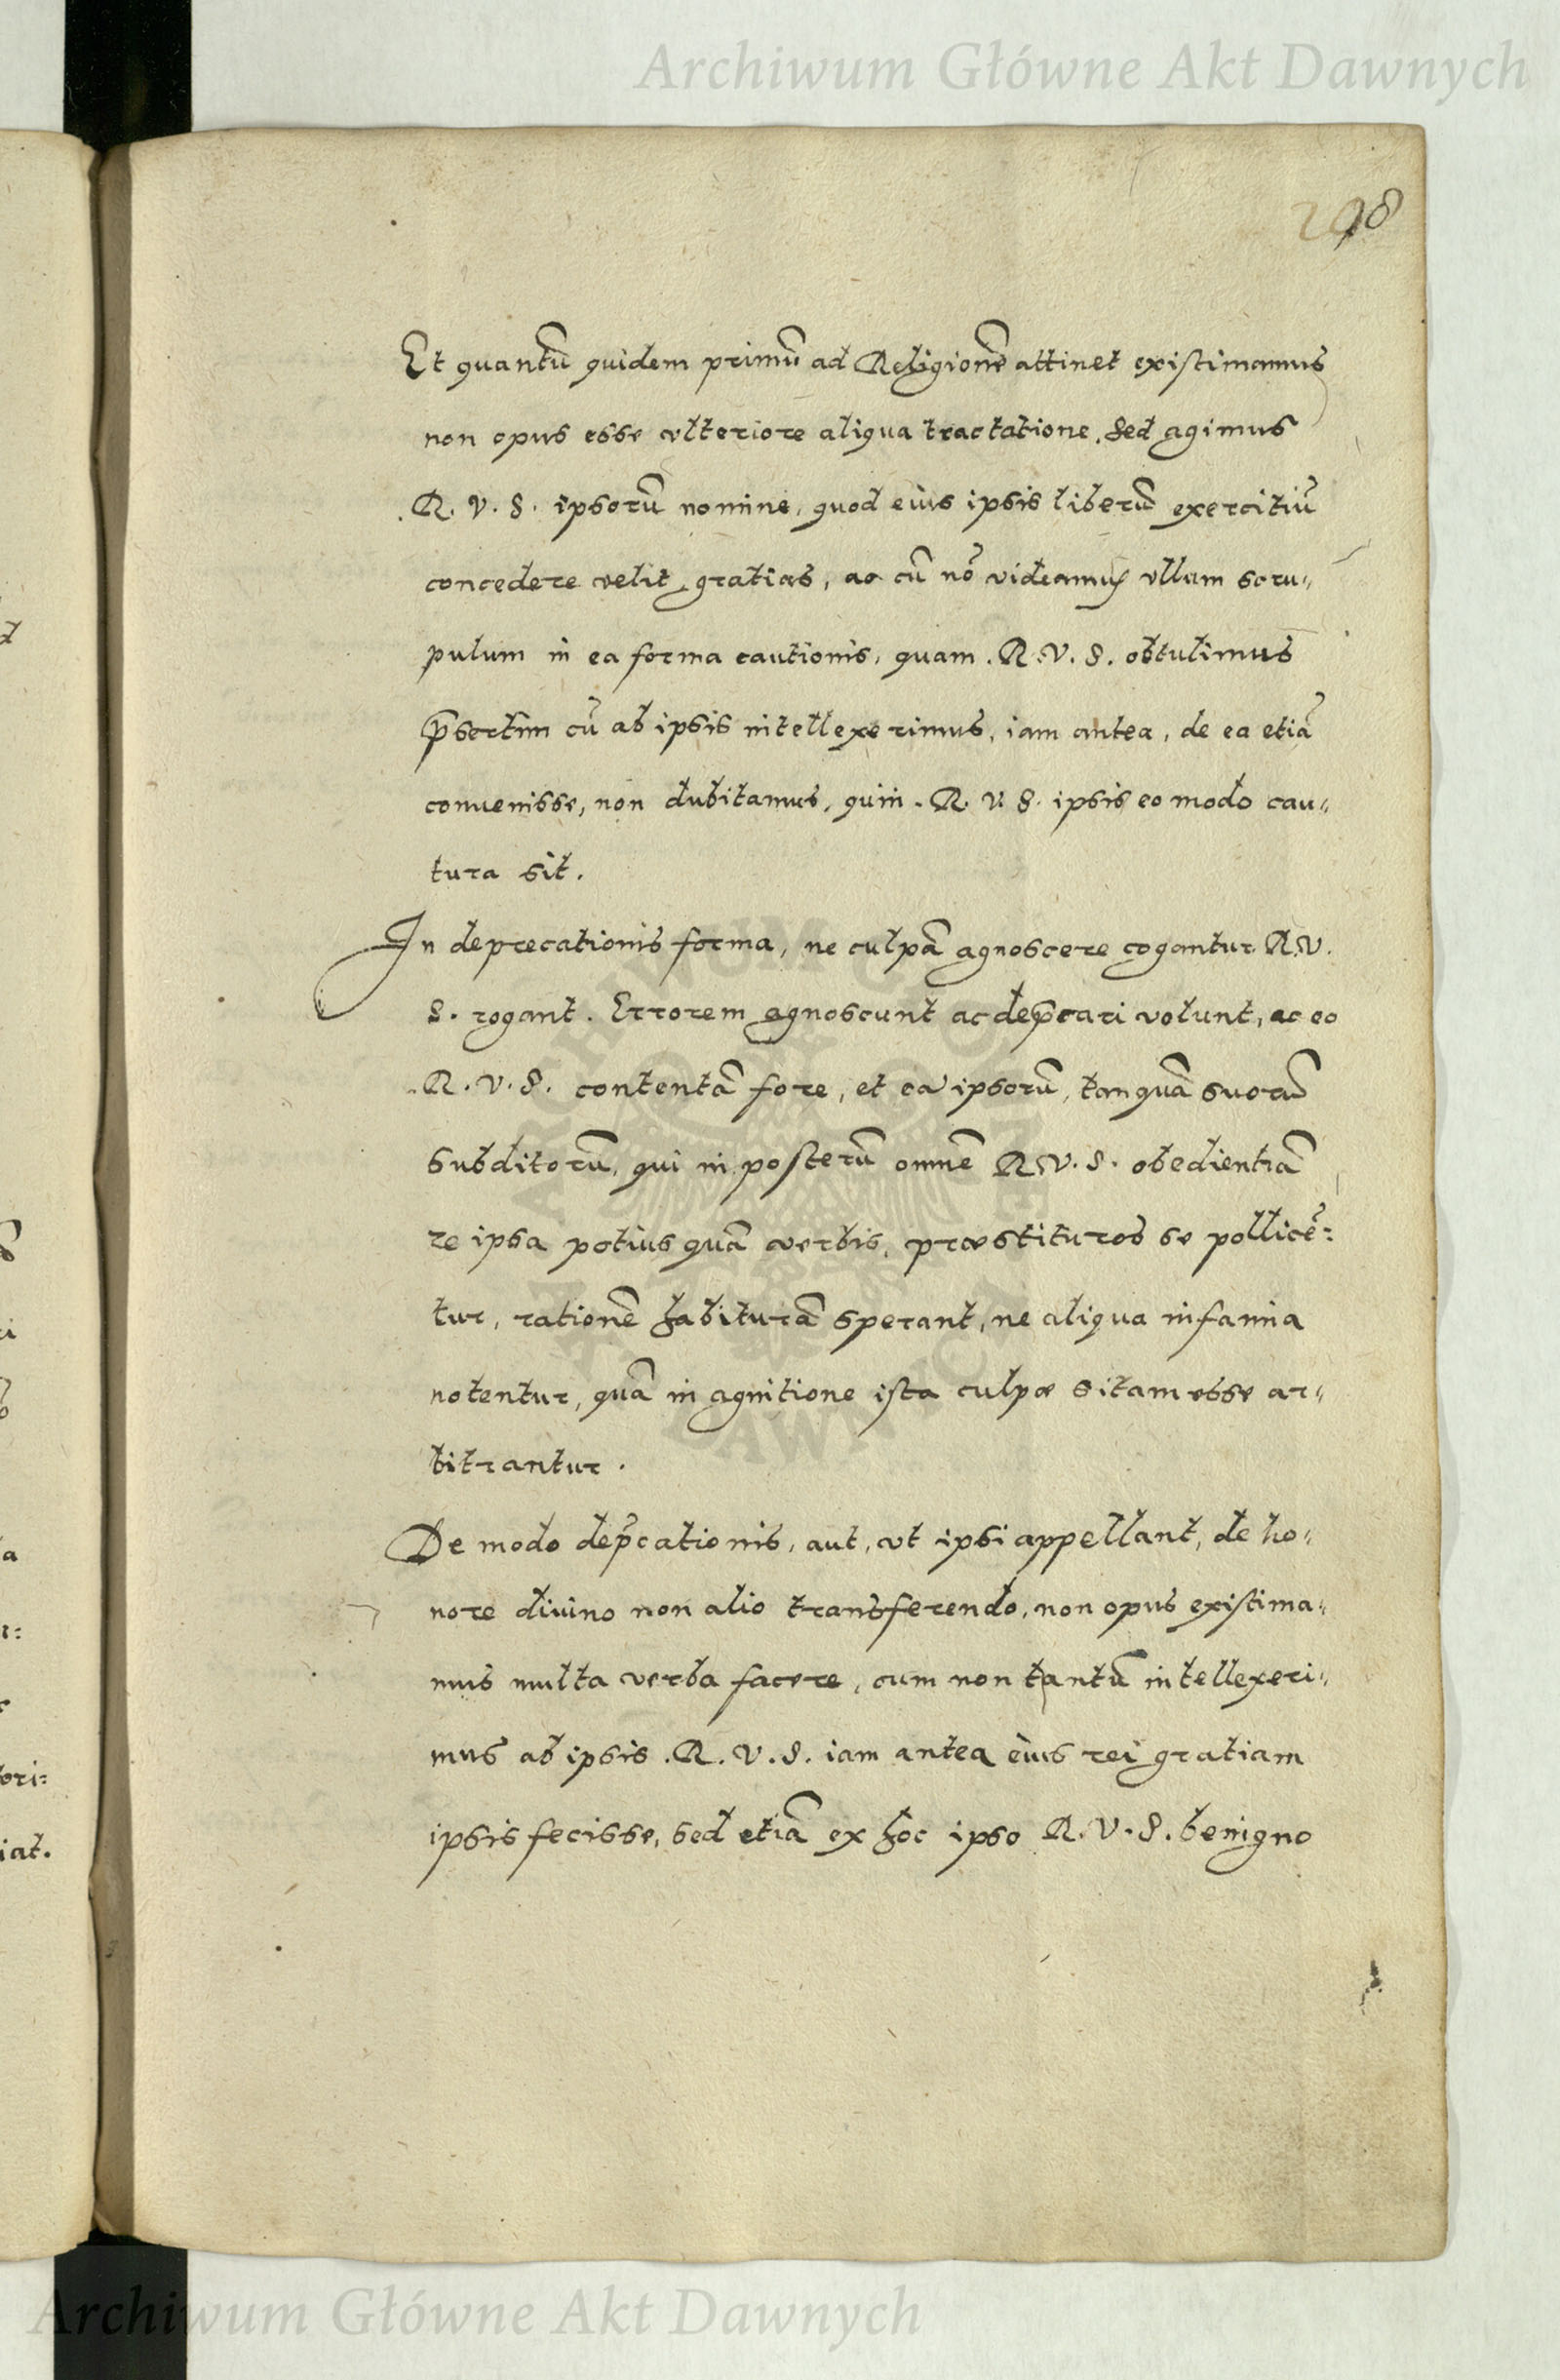 Archiwum Główne Akt Dawnych
298
Et quantũ quidem primũ ad Religionẽ attinet existimamus
non opus esse vlteriore aliqua tractatione. Sed agimus
R. V. S. ipsorũ nomine, quod eius ipsis liberũ exercitiũ
concedere velit gratias, ac cũ nõ videamus vllum scru„
pulum in ea forma cautionis, quam . R. V. S. obtulimus
p̃sertim cũ ab ipsis intellexerimus, iam antea, de ea etiã
conuenisse, non dubitamus, quin . R. V. S. ipsis eo modo cau„
tura sit.
In deprecationis forma, ne culpã agnoscere cogantur R. V.
S. rogant. Errorem agnoscunt ac dep̃cari volunt, ac eo
. R. V. S. contentã fore, et eã ipsorũ, tanquã suorũ
subditorũ, qui in posterũ omnẽ R. V. S. obedientiã
re ipsa potius quã verbis, præstituros se pollicẽ:
tur, rationẽ habiturã sperant, ne aliqua infamia
notentur, quã in agnitione ista culpæ sitam esse ar„
bitrantur.
De modo dep̃cationis, aut, vt ipsi appellant, de ho„
nore diuino non alio transferendo, non opus existima„
mus multa verba facere, cum non tantũ intellexeri„
mus ab ipsis . R. V. S. iam antea eius rei gratiam
ipsis fecisse, sed etiã ex hoc ipso R. V. S. benigno
Archiwum Główne Akt Dawnych